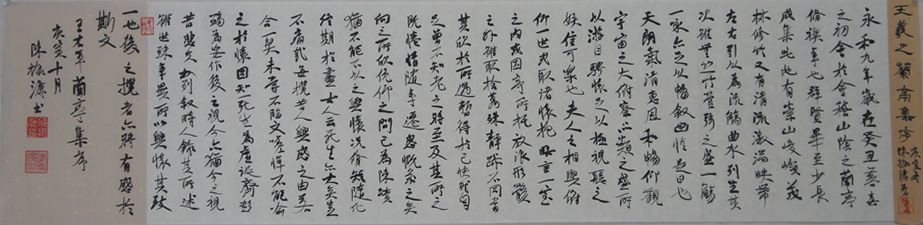 王羲之蘭亭集序
永和九年歲在癸丑暮春
之初會於會稽山陰之蘭亭
脩稧事也群賢畢至少長
咸集此地有崇山峻嶺茂
林修竹又有清流激湍映帶
左右引以為流觴曲水列坐其
次雖無絲竹管弦之盛一觴
一詠亦足以暢敘幽情是日也
天朗氣清惠風和暢仰觀
宇宙之大俯察品類之盛所
以游目騁懷足以極視聽之
娛信可樂也夫人之相與俯
仰一世或取諸懷抱晤言一室
之內或因寄所托放浪形骸
之外雖取捨萬殊靜躁不同當
其欣於所遇暫得於己快然自
足曾不知老之將至及其所之
既倦情隨事遷感慨系之矣
向之所欣俛仰之間已為陳跡
猶不能不以之興懷況脩短隨化
終期於盡古人云死生亦大矣豈
不痛哉每攬昔人興感之由若
合一契未嘗不臨文嗟悼不能喻
之於懷固知死生為虛誕齊彭
殤為妄作後之視今亦猶今之視
昔悲夫故列敘時人錄其所述
雖世殊事異所以興懷其致
一也後之攬者亦將有感於
斯文
王右軍蘭亭集序
庚寅十月
陳振濂書